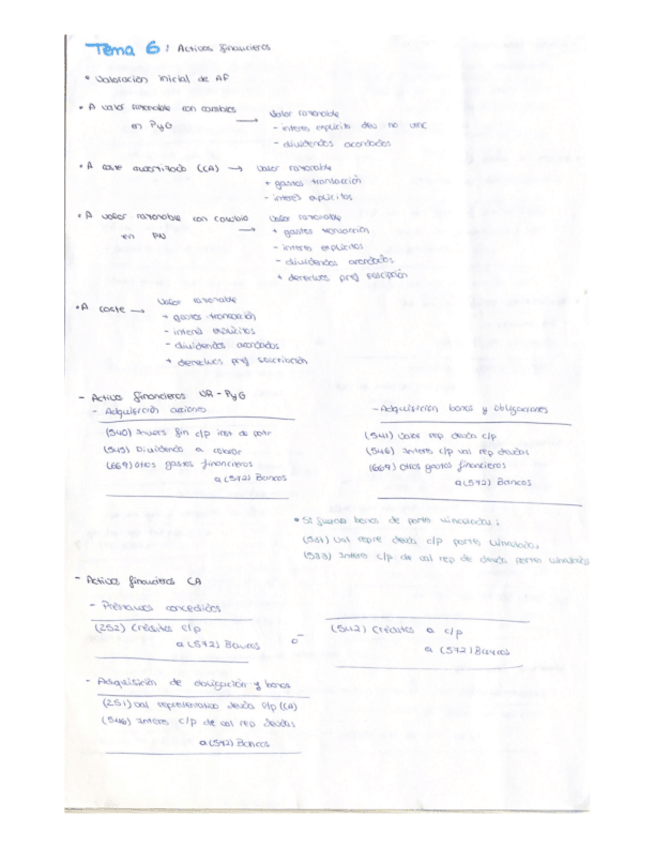 Tema 6: Activos financieros
• Valoración inicial de AF
• A valor razonable con cambios en PyG → Valor razonable
- interés explícito dev no venc
- dividendos acordados
• A coste amortizado (CA) → Valor razonable
+ gastos transacción
- interés explícitos
• A valor razonable con cambio en PN → Valor razonable
+ gastos transacción
- interés explícitos
- dividendos acordados
+ derechos pref suscripción
• A coste → Valor razonable
+ gastos transacción
- interés explícitos
- dividendos acordados
+ derechos pref suscripción
- Activos financieros VR-PyG
- Adquisición acciones
(540) Invers fin c/p inst de patr
(545) Dividendo a cobrar
(669) Otros gastos financieros
a (572) Bancos
- Adquisición bonos y obligaciones
(541) Valor rep deuda c/p
(546) Interés c/p val rep deudas
(669) Otros gastos financieros
a (572) Bancos
• Si fueran bonos de partes vinculadas:
(531) Val repre deuda c/p partes vinculadas
(533) Interés c/p de val rep de deuda partes vinculadas
- Activos financieros CA
- Préstamos concedidos
(252) Créditos l/p
a (572) Bancos
o
(542) Créditos a c/p
a (572) Bancos
- Adquisición de obligación y bonos
(251) Val representativo deuda l/p (CA)
(546) Interés c/p de val rep deudas
a (572) Bancos